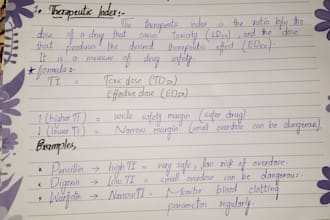 1. Therapeutic Index:-
The therapeutic index is the ratio b/w the
dose of a drug that causes toxicity (LD50), and the dose
that produces the desired therapeutic effect (ED50).
It is a measure of drug safety.
* formula:-
TI = Toxic dose (TD50)
Effective dose (ED50)
↑ (higher TI) = wide safety margin (safer drug)
↓ (lower TI) = Narrow margin (small overdose can be dangerous)
Examples,
• Penicillin → high TI = very safe, low risk of overdose
• Digoxin → low TI = small overdose can be dangerous.
• Warfarin → Narrow TI = Monitor blood clotting
parameter regularly.